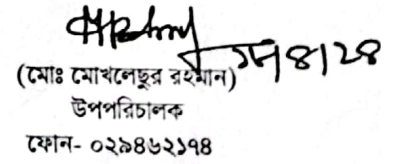 (মোঃ মোখলেছুর রহমান)
উপপরিচালক
ফোন- ০২৯৪৬২১৭৪